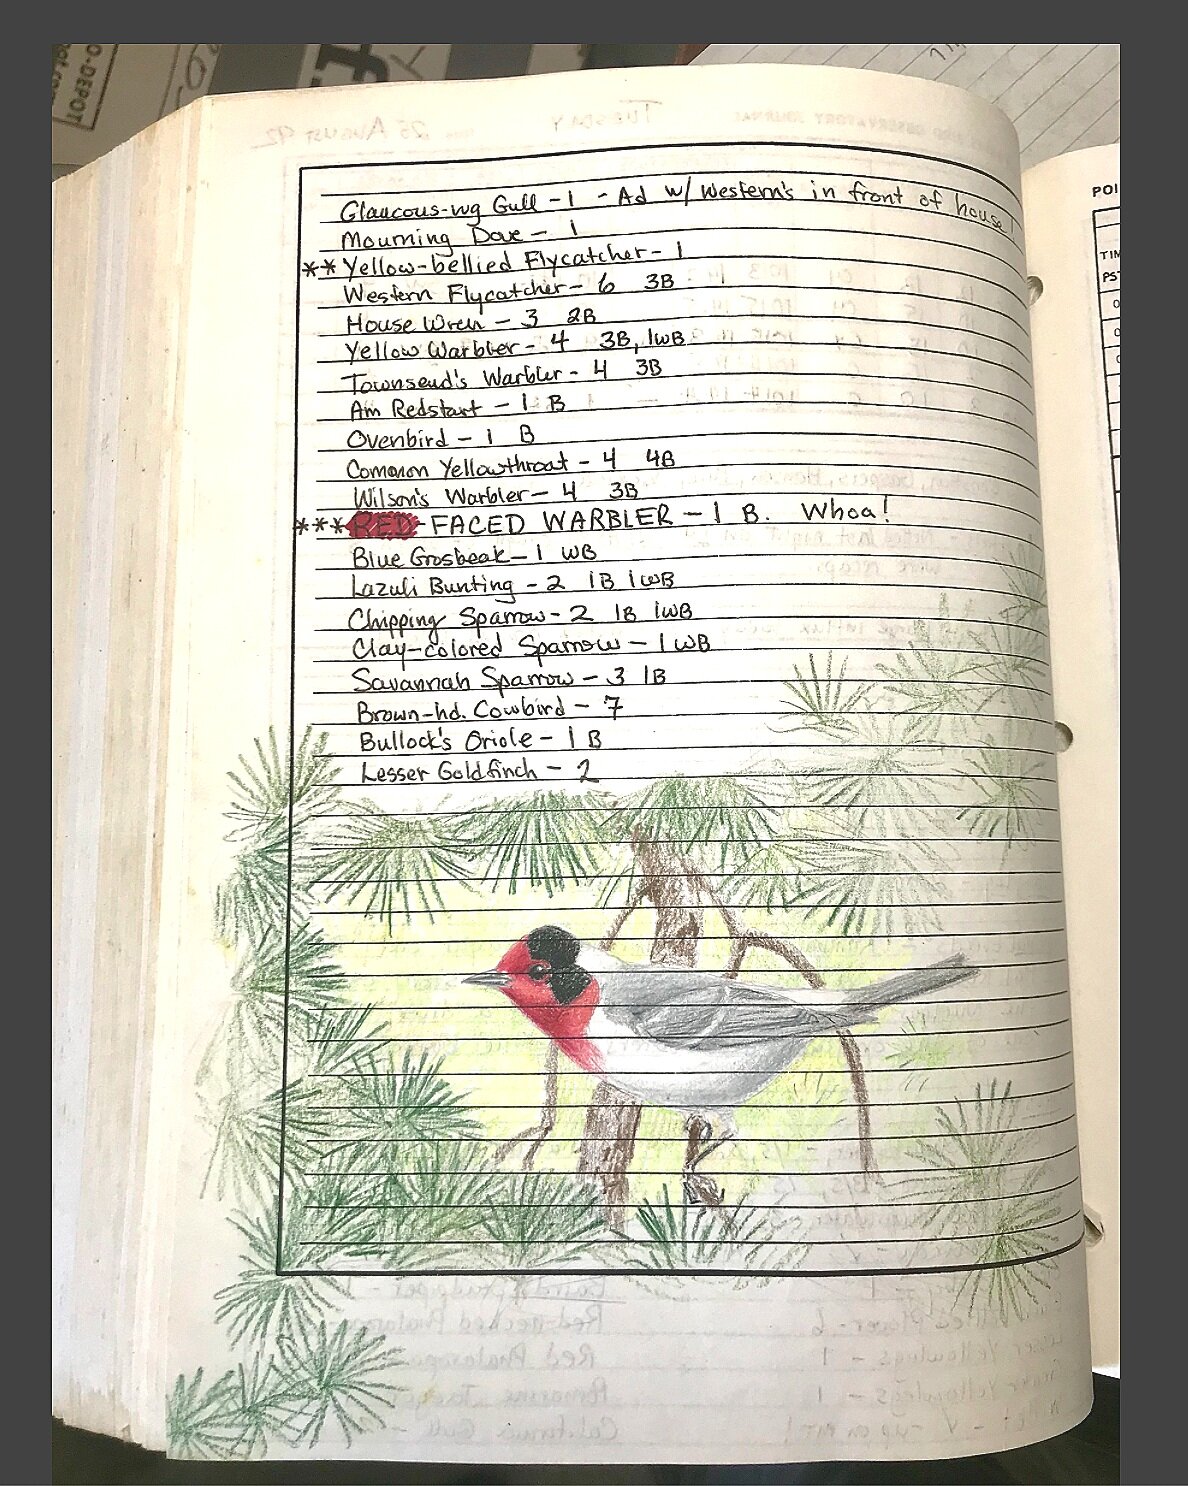 O-DEPOT
Glaucous-wg Gull - 1 - Ad w/ Western's in front of house!
Mourning Dove - 1
** Yellow-bellied Flycatcher - 1
Western Flycatcher - 6 3B
House Wren - 3 2B
Yellow Warbler - 4 3B, 1WB
Townsend's Warbler - 4 3B
Am Redstart - 1 B
Ovenbird - 1 B
Common Yellowthroat - 4 4B
Wilson's Warbler - 4 3B
*** RED-FACED WARBLER - 1 B. Whoa!
Blue Grosbeak - 1 WB
Lazuli Bunting - 2 1B 1WB
Chipping Sparrow - 2 1B 1WB
Clay-colored Sparrow - 1 WB
Savannah Sparrow - 3 1B
Brown-hd. Cowbird - 7
Bullock's Oriole - 1 B
Lesser Goldfinch - 2
POI
TIM
PS